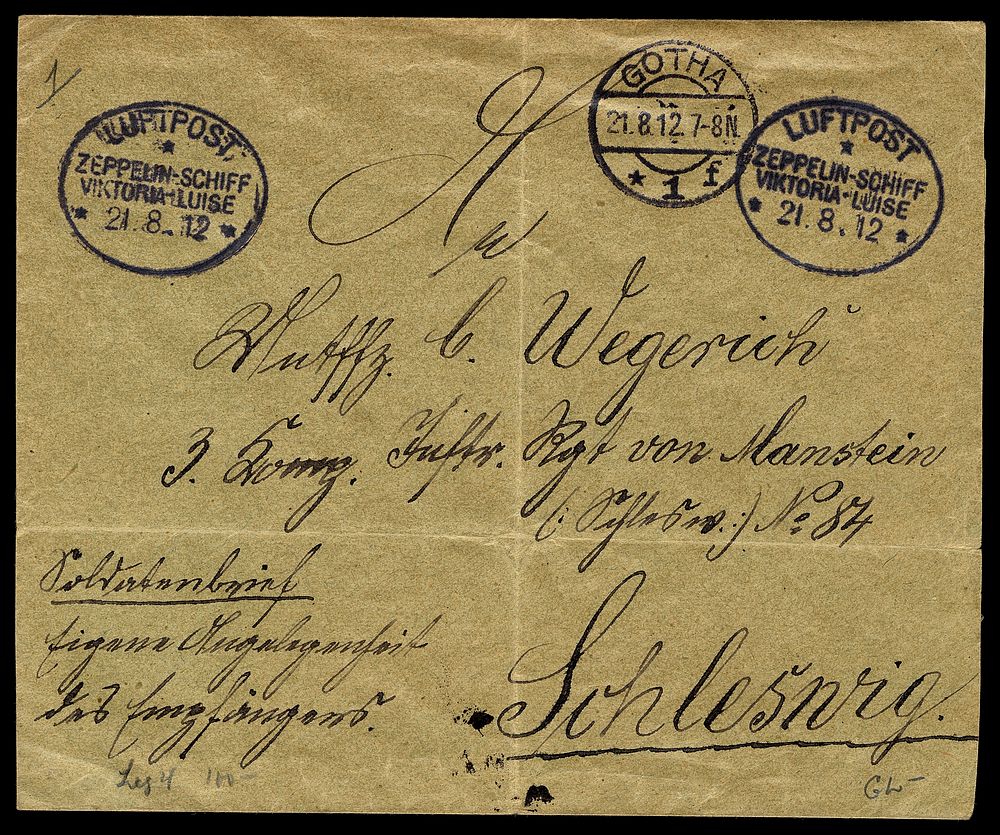 1
LUFTPOST
ZEPPELIN-SCHIFF
VIKTORIA-LUISE
21.8.12
GOTHA
21.8.12.7-8N.
1 f
LUFTPOST
ZEPPELIN-SCHIFF
VIKTORIA-LUISE
21.8.12
An
b. Wegerich
3. Komp. Inftr. Rgt von Manstein
(: Schlesw. :) No 84
Soldatenbrief
Eigene Angelegenheit
des Empfängers.
Schleswig.